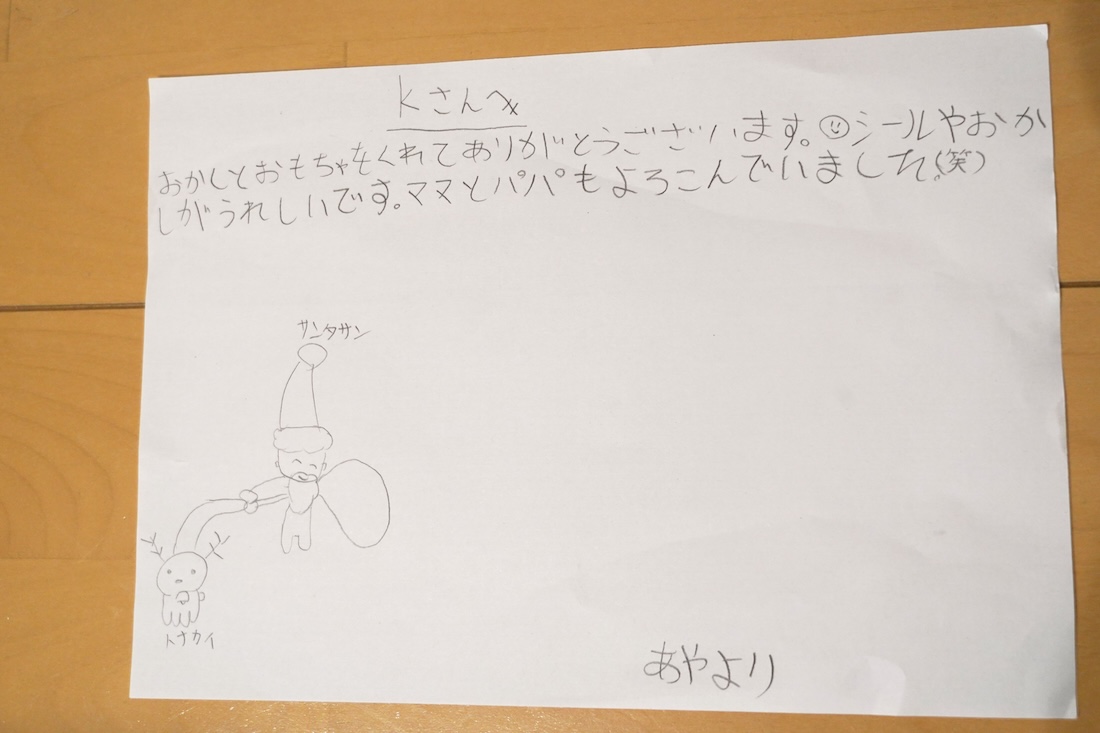 Kさんへ
おかしとおもちゃをくれてありがとうございます。☺シールやおか
しがうれしいです。ママとパパもよろこんでいました。(笑)
サンタサン
トナカイ
あやより